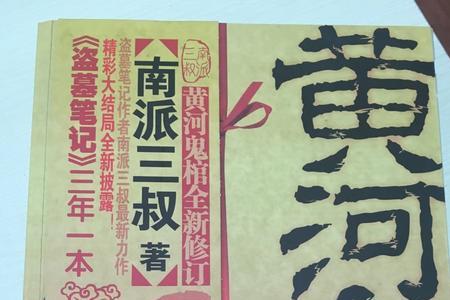 黄河
南派三叔
黄河鬼棺全新修订
【南派三叔 著】
盗墓笔记作者南派三叔最新力作
精彩大结局全新披露
《盗墓笔记》三年一本